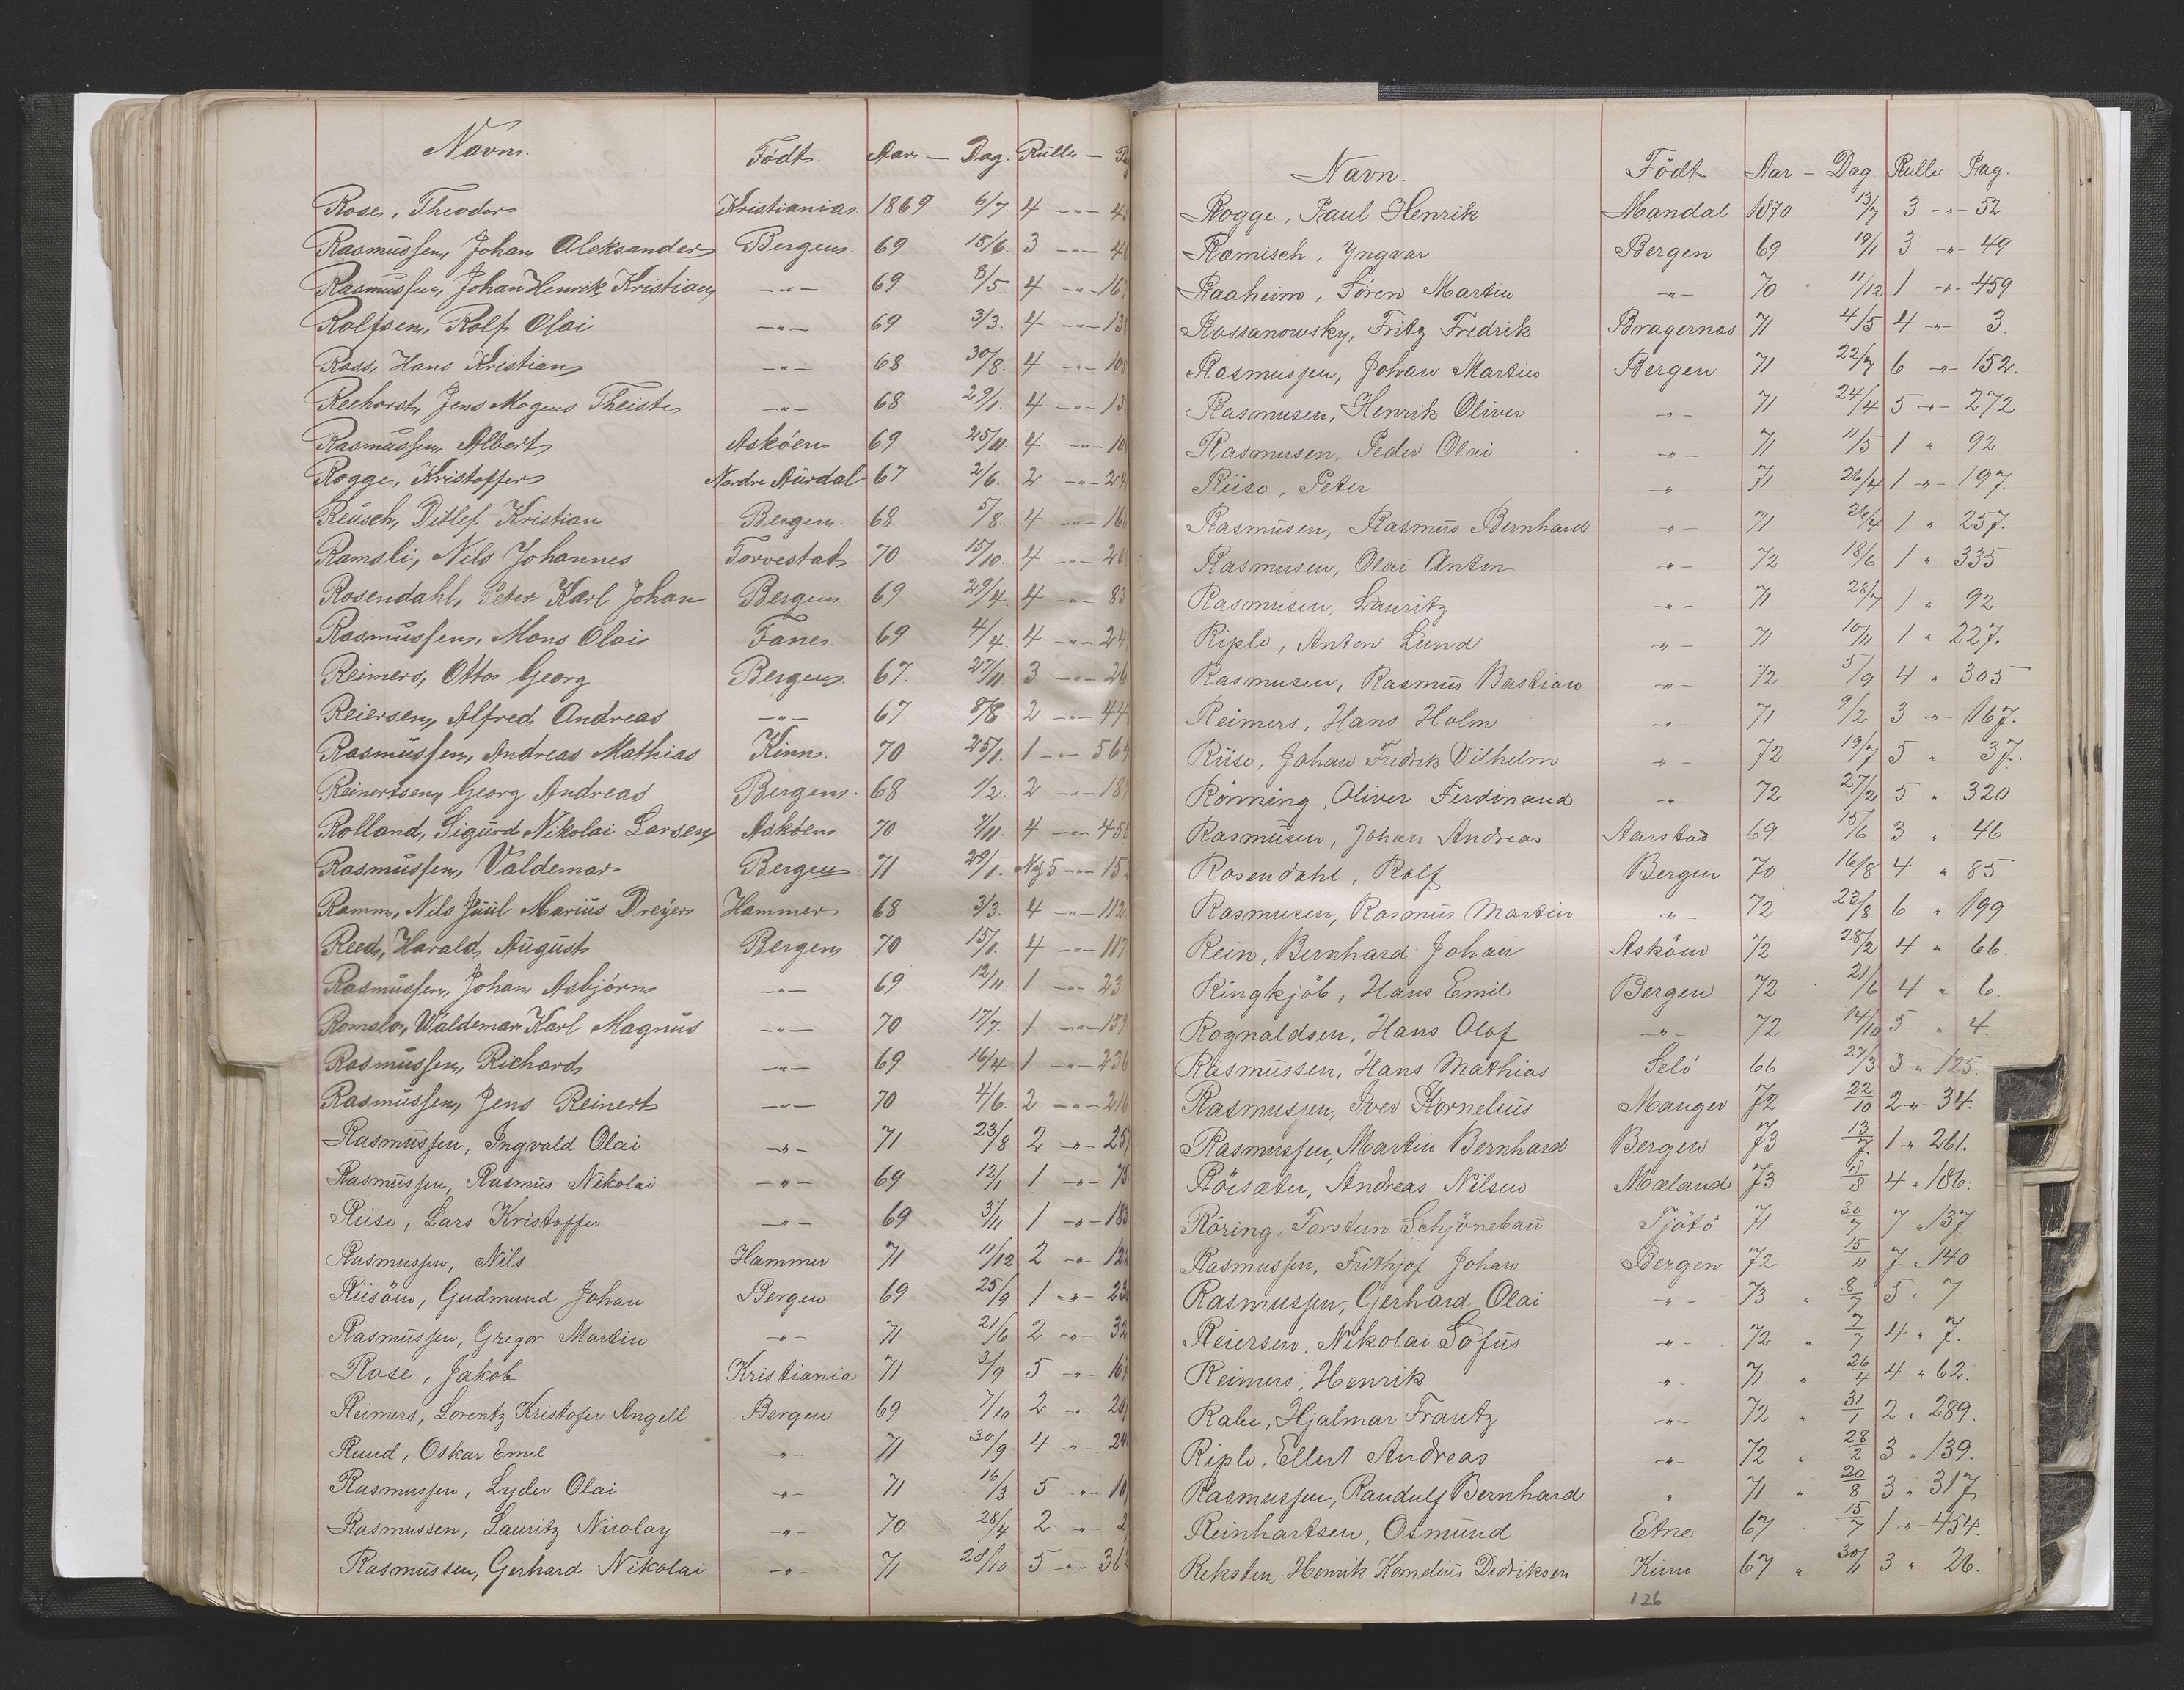 Navn. Födt. Aar — Dag. Rulle —
Rose, Theodor Kristiania. 1869 6/7. 4 -"-
Rasmussen, Johan Aleksander Bergen. 69 15/6. 3 -"-
Rasmussen, Johan Henrik Kristian -"- 69 8/5. 4 -"-
Rolfsen, Rolf Olai -"- 69 3/3. 4 -"-
Ross, Hans Kristian -"- 68 30/8. 4 -"-
Reehorst, Jens Mogens Theiste -"- 68 29/1. 4 -"-
Rasmussen, Albert Asköen 69 25/11. 4 -"-
Rogge, Kristoffer Nordre Aurdal 67 2/6. 2 -"-
Reusch, Ditlef Kristian Bergen. 68 5/8. 4 -"-
Ramsli, Nils Johannes Torvestad. 70 15/10. 4 -"-
Rosendahl, Peter Karl Johan Bergen. 69 29/4. 4 -"-
Rasmussen, Mons Olai Fane. 69 4/4. 4 -"-
Reimers, Otto Georg Bergen. 67. 27/11. 3 -"-
Reiersen, Alfred Andreas -"- 67 8/8 2 -"-
Rasmussen, Andreas Mathias Kinn. 70 25/1. 1 -"-
Reinertsen, Georg Andreas Bergen. 68 1/2. 2 -"-
Rolland, Sigurd Nikolai Larsen Asköen 70 7/11. 4 -"-
Rasmussen, Valdemar Bergen. 71 29/1. Ny 5 -"-
Ramm, Nils Juul Marius Dreyer Hammer 68 3/3. 4 -"-
Reed, Harald August Bergen 70 15/1. 4 -"-
Rasmussen, Johan Asbjörn -"- 69 12/11. 1 -"-
Romslo, Waldemar Karl Magnus -"- 70 17/7. 1 -"-
Rasmussen, Richard -"- 69 16/4 1 -"-
Rasmussen, Jens Reinert -"- 70 4/6. 2 -"-
Rasmussen, Ingvald Olai -"- 71 23/8 2 -"-
Rasmussen, Rasmus Nikolai -"- 69 12/1 1 -"-
Riise, Lars Kristoffer -"- 69 3/11 1 -"-
Rasmussen, Nils Hammer 71 11/12 2 -"-
Riisöen, Gudmund Johan Bergen 69 25/9 1 -"-
Rasmussen, Gregor Martin -"- 71 21/6 2 -"-
Rose, Jakob Kristiania 71 3/9 5 -"-
Reimers, Lorentz Kristofer Angell Bergen 69 7/10 2 -"-
Ruud, Oskar Emil -"- 71 30/9 4 "
Rasmussen, Lyder Olai -"- 71 16/3 5 -"-
Rasmussen, Lauritz Nicolay -"- 70 28/4 2 "
Rasmussen, Gerhard Nikolai -"- 71 28/10 5 -"-
Navn. Födt Aar - Dag. Rulle Pag.
Rogge, Paul Henrik Mandal 1870 13/7 3 -"- 52
Rømisch, Yngvar Bergen 69 19/1 3 -"- 49
Raaheim, Sören Martin -"- 70 11/12 1 -"- 459
Rossanowsky, Fritz Fredrik Bragernæs 71 4/5 4 -"- 3.
Rasmussen, Johan Martin Bergen 71 22/7 6 -"- 152.
Rasmusen, Henrik Oliver -"- 71 24/4 5 -"- 272
Rasmusen, Peder Olai -"- 71 11/5 1 " 92
Riise, Peter -"- 71 26/4 1 -"- 197.
Rasmusen, Rasmus Bernhard -"- 71 26/4 1 " 257.
Rasmusen, Olai Anton -"- 72 18/6 1 " 335
Rasmusen, Lauritz -"- 71 28/7 1 " 92
Riple, Anton Lund -"- 71 10/11 1 " 227.
Rasmusen, Rasmus Bastian -"- 72 5/9 4 " 305
Reimers, Hans Holm -"- 71 9/2 3 -"- 167.
Riise, Johan Fredrik Vilhelm -"- 72 19/7 5 " 37.
Rönning, Oliver Ferdinand -"- 72 27/2 5 " 320
Rasmusen, Johan Andreas Aarstad 69 15/6 3 " 46
Rosendahl, Rolf Bergen 70 16/8 4 " 85
Rasmusen, Rasmus Martin -"- 72 23/8 6 " 199
Rein, Bernhard Johan Asköen 72 28/2 4 " 66.
Ringkjöb, Hans Emil Bergen 72 21/6 4 " 6.
Rognaldsen, Hans Olaf -"- 72 14/10 5 " 4.
Rasmussen, Hans Mathias Selö 66 27/3 3 " 125.
Rasmussen, Iver Kornelius Manger 72 22/10 2 -"- 34.
Rasmussen, Martin Bernhard Bergen 73 13/7 1 -"- 261.
Röisæter, Andreas Nilsen Mæland 73 8/8 4 " 186.
Röring, Torstein Schjönebau Tjötö 71 30/7 7 " 137
Rasmussen, Frithjof Johan Bergen 72 15/11 7 " 140
Rasmussen, Gerhard Olai -"- 73 " 8/7 5 " 7
Reiersen, Nikolai Sofus -"- 72 " 7/7 4 " 7.
Reimers, Henrik -"- 71 " 26/4 4 " 62.
Rabe, Hjalmar Frantz -"- 72 " 31/1 2 " 289.
Riple, Ellert Andreas -"- 72 " 28/2 3 " 139.
Rasmussen, Randulf Bernhard " 71 " 20/8 3 " 317
Reinhartsen, Osmund Etne 67 15/7 1 -"- 454.
Reksten, Henrik Kornelius Dedriksen Kinn 67 " 30/11 3 " 26.
126